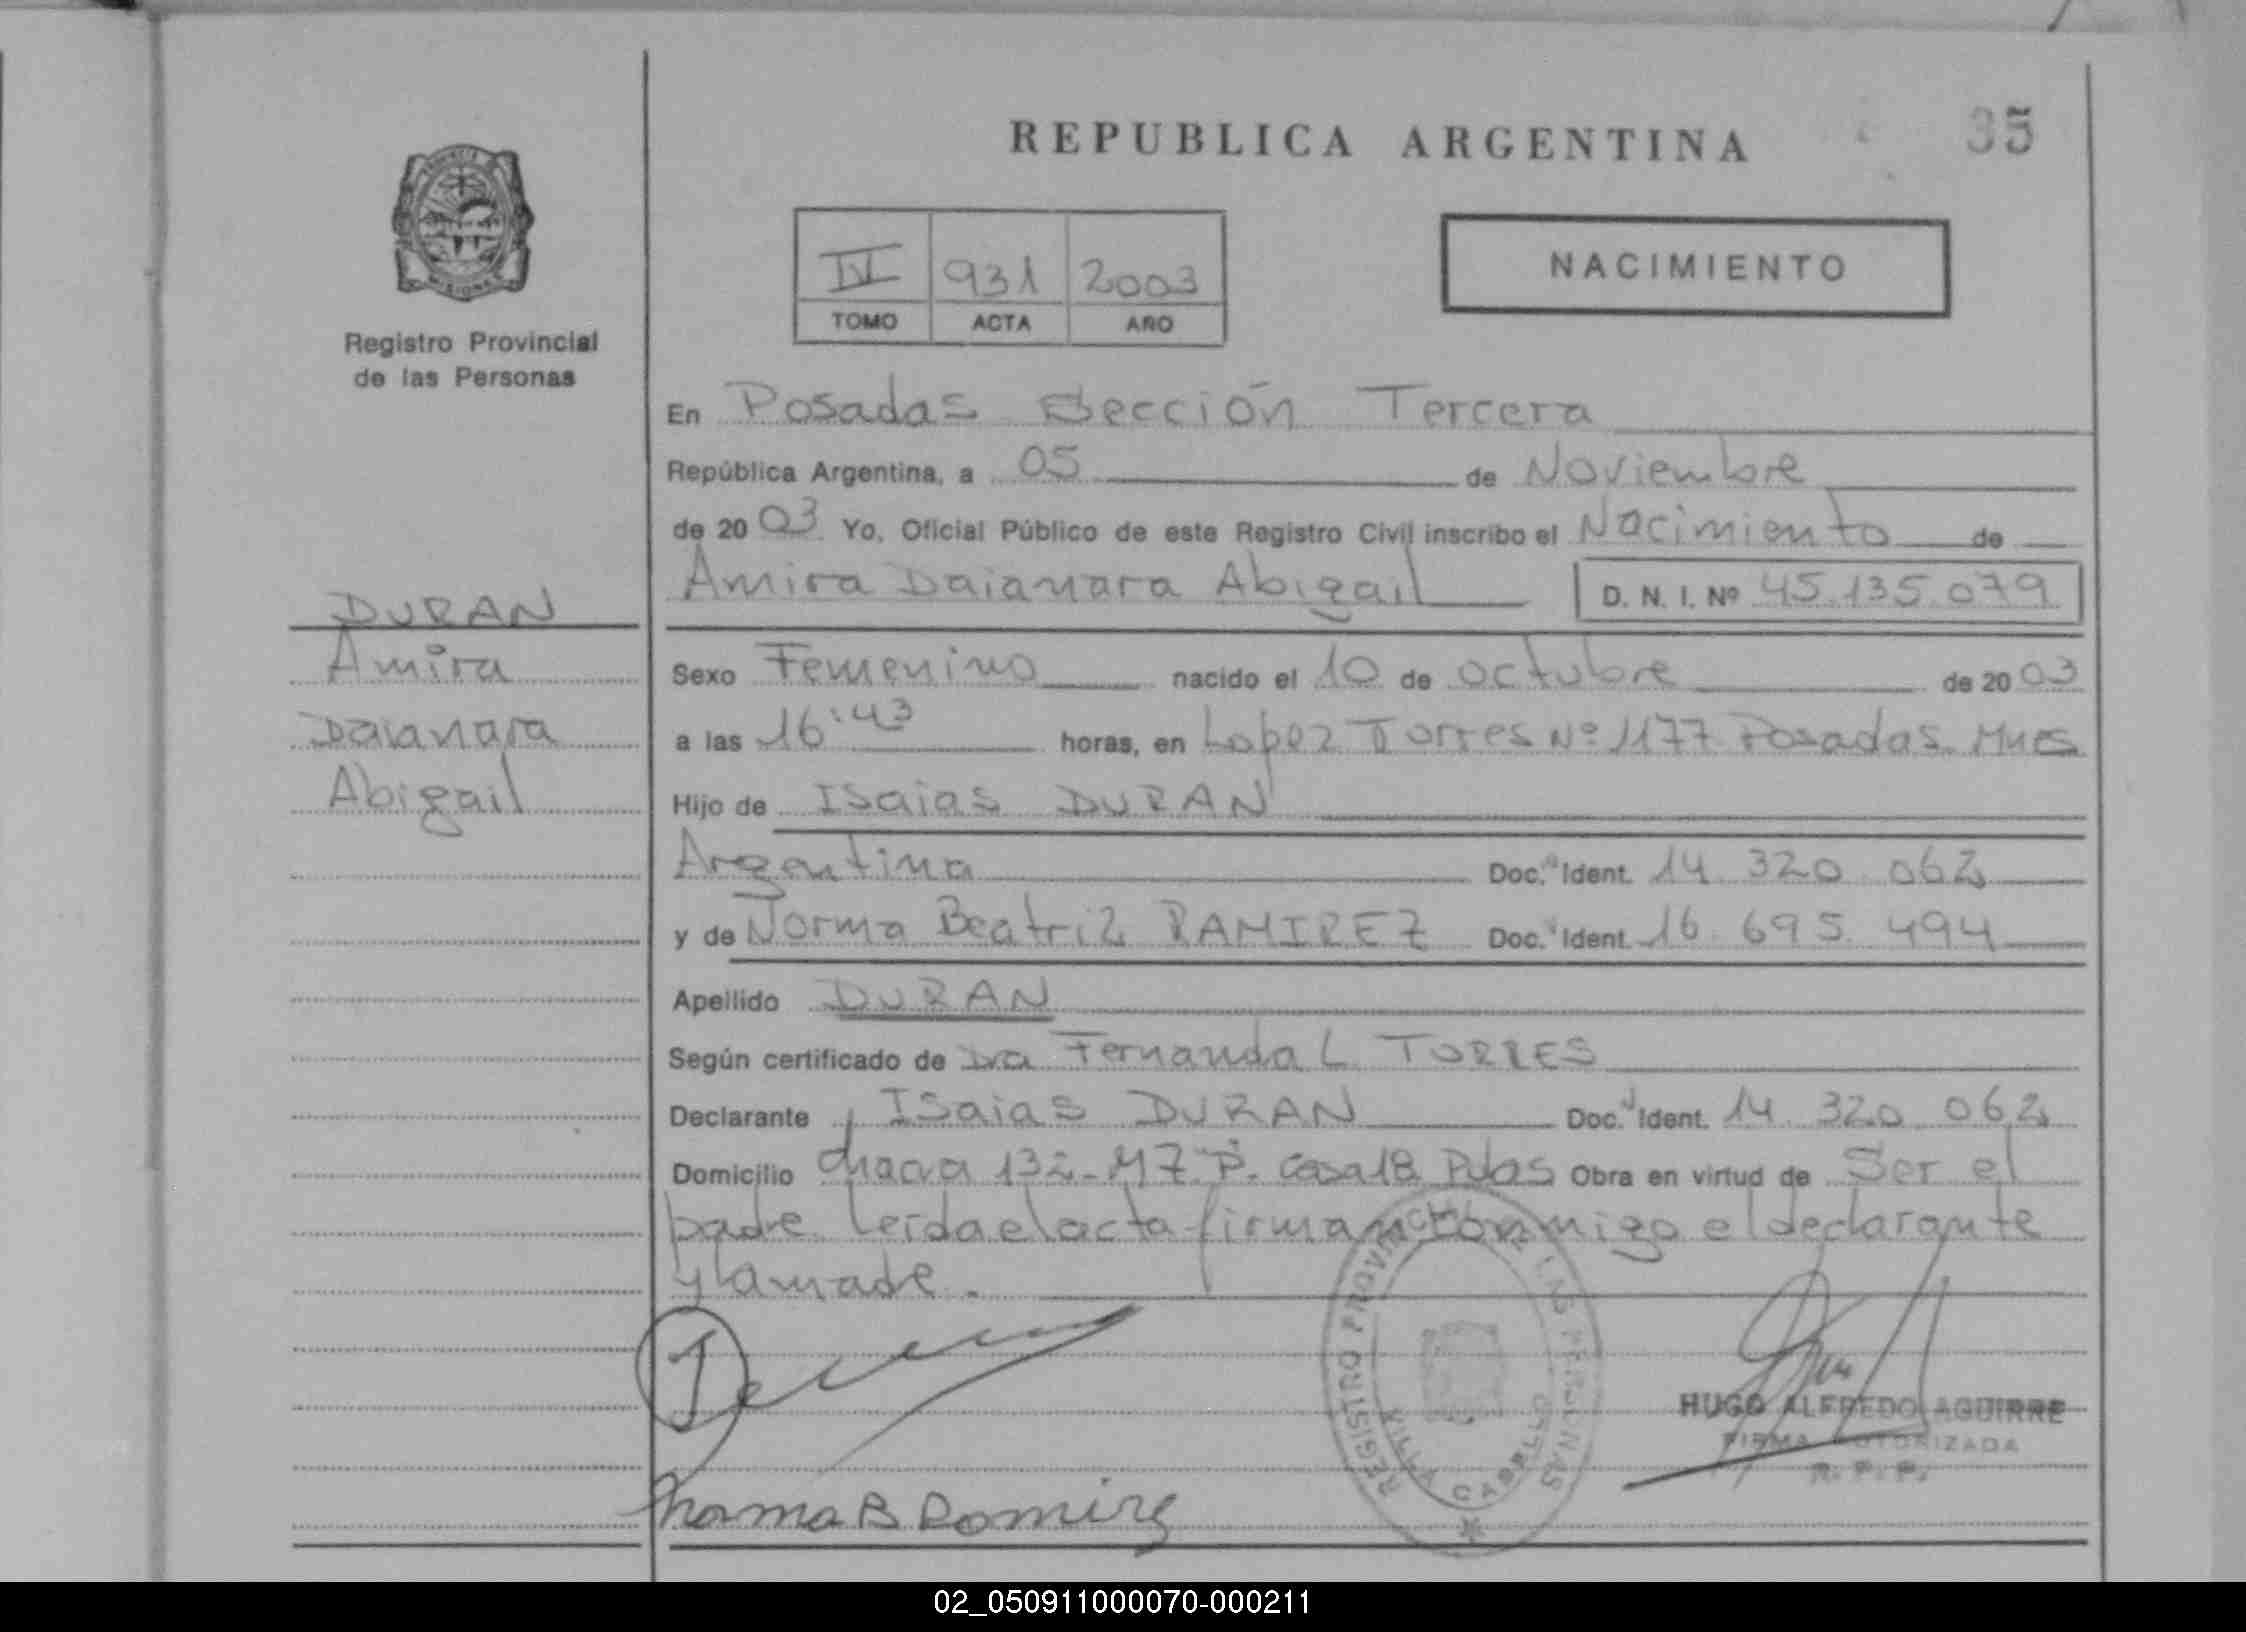 REPUBLICA ARGENTINA
35
PROVINCIA DE MISIONES
Registro Provincial
de las Personas
IV 931 2003
TOMO ACTA AÑO
NACIMIENTO
En Posadas Sección Tercera
República Argentina, a 05 de Noviembre
de 2003 Yo, Oficial Público de este Registro Civil inscribo el Nacimiento de
Amira Daianara Abigail D. N. I. Nº 45.135.079
DURAN
Amira
Daianara
Abigail
Sexo Femenino nacido el 10 de octubre de 2003
a las 16:43 horas, en Lopez Torres Nº 1177 Posadas Mnes
Hijo de Isaias DURAN
Argentina Doc. Ident. 14.320.062
y de Norma Beatriz RAMIREZ Doc. Ident. 16.695.494
Apellido DURAN
Según certificado de Dra Fernanda L TORRES
Declarante Isaias DURAN Doc. Ident. 14.320.062
Domicilio chacra 132-M7"P". Casa 18 Pdas Obra en virtud de Ser el
padre. Leída el acta firman conmigo el declarante
y la madre.
REGISTRO PROVINCIAL DE LAS PERSONAS
VILLA CABELLO
HUGO ALFREDO AGUIRRE
FIRMA AUTORIZADA
R. P. P.
Norma B Ramirez
02_050911000070-000211